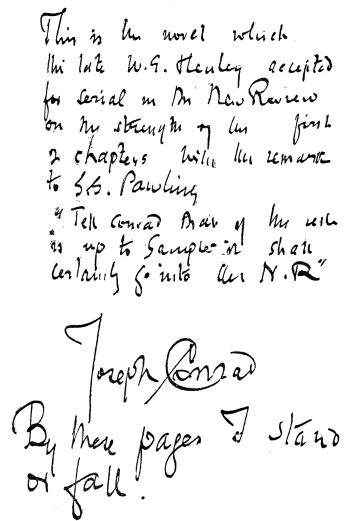 This is the novel which
the late W. E. Henley accepted
for serial in the New Review
on the strength of the first
2 chapters with the remark
to S.S. Pawling
"Tell Conrad that if the rest
is up to Sample it shall
certainly go into the N.R"
Joseph Conrad
By these pages I stand
or fall.